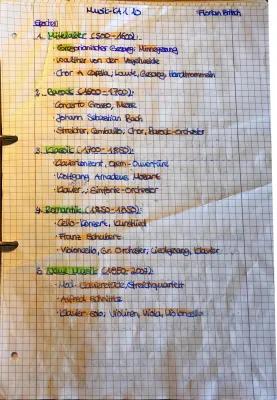 Musik-KA 1. 10 Florian Fritsch
Epochen
1. Mittelalter (500-1600):
· Gregorianischer Gesang, Minnegesang
· Walther von der Vogelweide
· Chor A Capella, Laute, Gesang, Handtrommeln
2. Barock (1600-1700):
· Concerto Grosso, Messe
· Johann Sebastian Bach
· Streicher, Cembalo, Chor, Barock-Orchester
3. Klassik (1700-1850):
· Klavierkonzert, Opern-Ouvertüre
· Wolfgang Amadeus Mozart
· Klavier, Sinfonie-Orchester
4. Romantik
· Cello-Konzert, Kunstlied
· Franz Schubert
· Violoncello, Gr. Orchester, Liedgesang, Klavier
5. Neue Musik
· Mod. Klavierstücke, Streichquartett
· Alfred Schnittke
· Klavier-Solo, Violinen, Viola, Violoncello